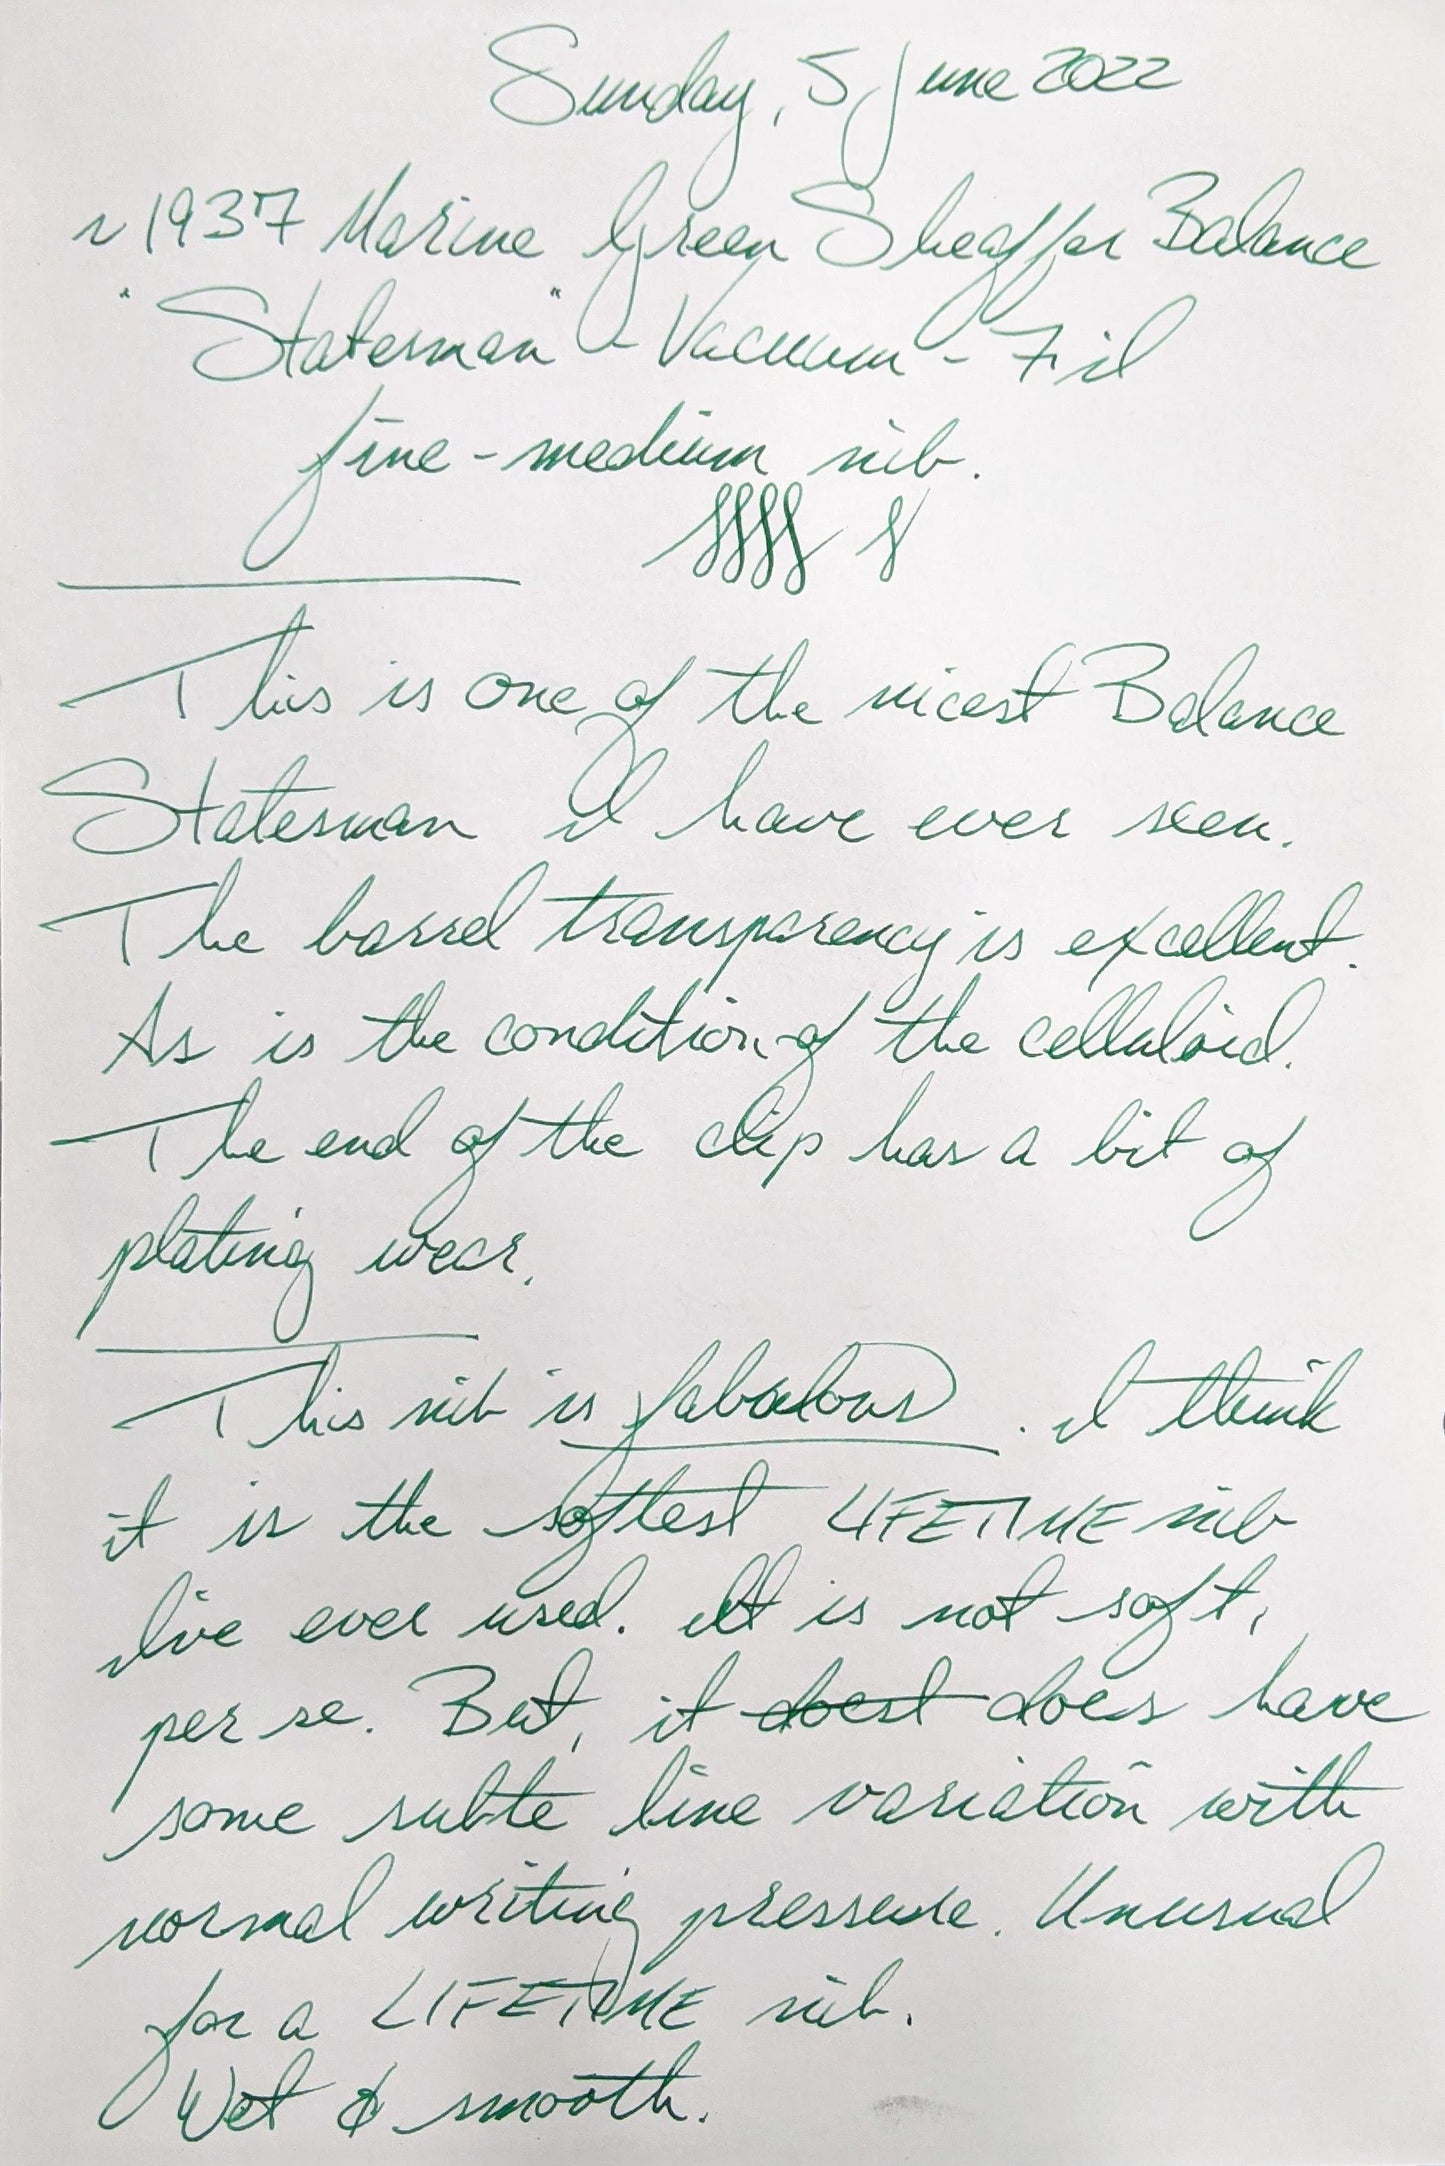 Sunday, 5 June 2022
~1937 Marine Green Sheaffer Balance
"Statesman" - Vacuum-Fil
fine-medium nib.
This is one of the nicest Balance
Statesman I have ever seen.
The barrel transparency is excellent.
As is the condition of the celluloid.
The end of the clip has a bit of
plating wear.
This nib is fabulous. I think
it is the softest LIFETIME nib
I've ever used. It is not soft,
per se. But, it doest does have
some subte line variation with
normal writing pressure. Unusual
for a LIFETIME nib.
Wet & smooth.